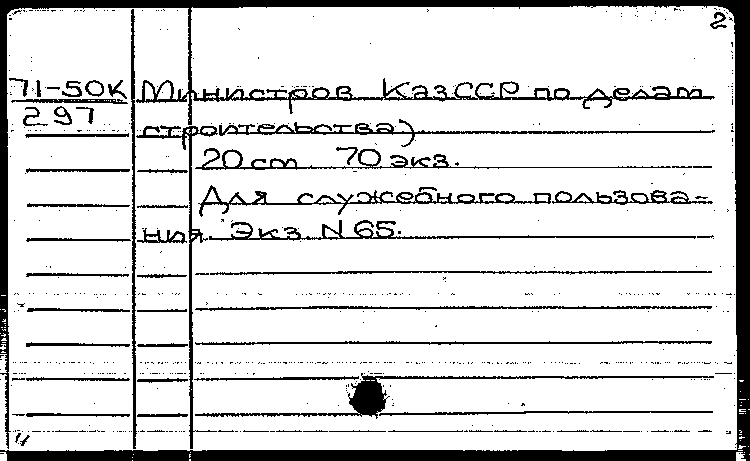 2
71-50К Министров КазССР по делам
297
строительства)
20 ст 70 экз.
Для служебного пользова=
ния. Экз. N 65.